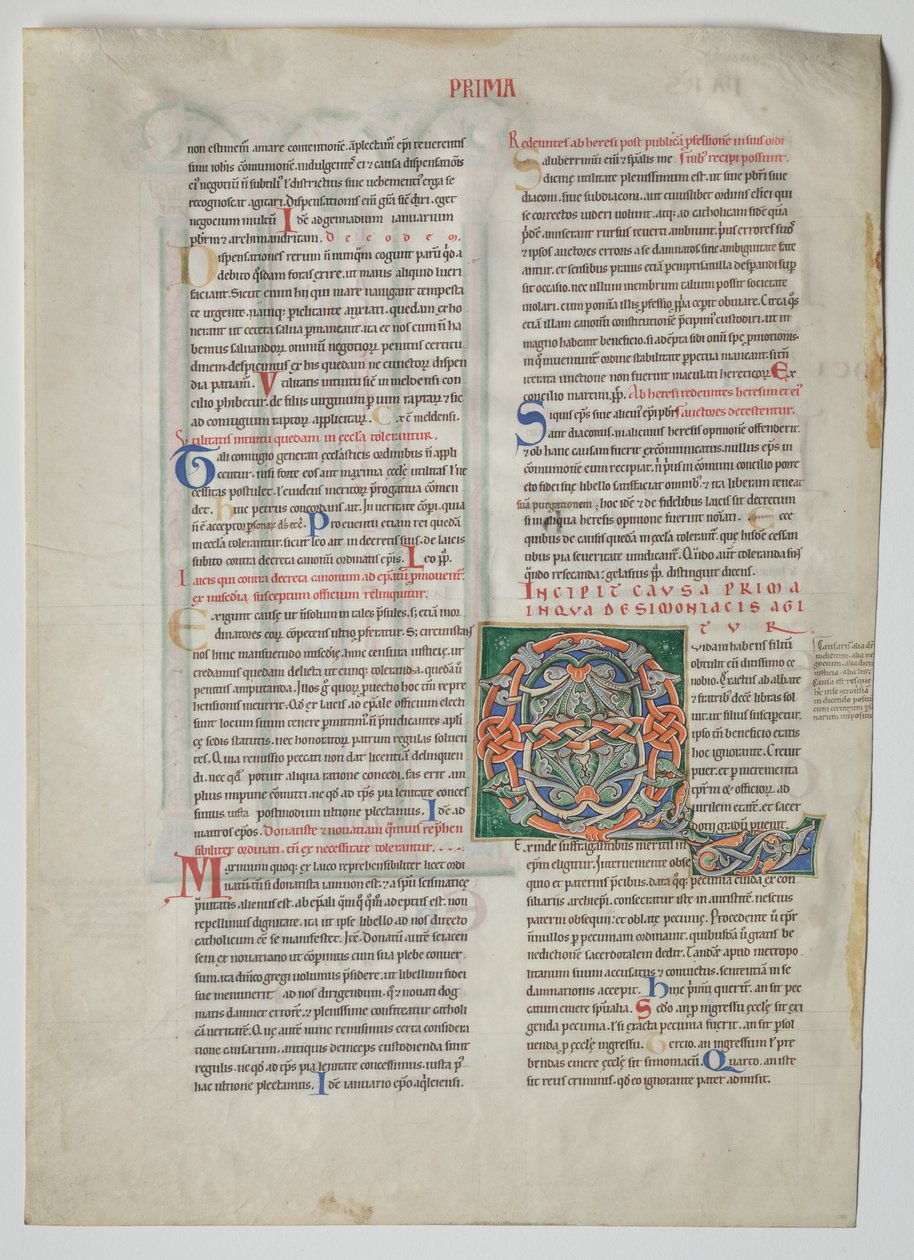 PRIMA
non estimem᷑ amare contentione. aplectam᷑ ep̄i reuerentis
simi ioh̄is cōmunionē. indulgentes ei & causa dispensatiōis
recognoscat agitari. Dispensationis
negocium multū. Idē ad gennadium ianuarium
pb̄rm & archimandritam. De eodem.
Dispensationes rerum
debito foras exire. ut maius aliquid lucri
faciant. Sicut enim hij qui mare nauigant tempesta
te urgente. naui periclitante anxiati. quedam exho
nerant ut cetera salua permaneant. ita et nos cum ha
bemus saluandorum omnium negotiorum penitus certitu
dinem. despicimus ex his quedam ne cunctorum dispen
dia patiam᷑. Vtilitatis intuitu in meldensi con
cilio prohibet᷑. de filiis uirginum
ad coniugium raptoris applicari. Ex meldensi.
Vtilitatis intuitu quedam in eccl̄a tolerantur.
Tali coniugio generati eccl̄asticis ordinibus appli
centur. nisi forte eos aut maxima eccl̄e utilitas
cessitas postulet. euidens meritorum prerogatiua cōmen
det. hinc petrus concordans ait. In ueritate
Prouentu etiam rei quedā
in eccl̄a tolerantur. sicut leo ait in decretis suis. de laicis
subito contra decreta canonū ordinatis ep̄is. Leo pp̄.
Laici qui contra decreta canonum ad ep̄atū
ex misedia susceptum officium relinquitur.
Exigunt causę ut non solum in tales p̄sules. sed etiā mor
dinatores eorum competens ultio proferatur. Sed circumstant
nos hinc mansuetudo hinc censura iusticie. ut
credamus quedam delicta utcunq; toleranda. quedā
penitus amputanda. Illos quorum prouectio hoc tm̄ repre
hensionis incurrit. quod ex laicis ad ep̄ale officium electi
sunt locum suum tenere permittimus.
ce sedis statutis. nec honoratorum patrum regulas soluen
tes. Quia remissio peccati non dat licentiā delinquen
di. nec qd̄ potuit aliqua ratione concedi. fas erit am
plius impune cōmitti. ne qd̄ ad tp̄s pia lenitate conces
simus. iusta postmodum ultione plectamus. Idē ad
mauros ep̄os. Donatiste & nouatiani
sibiliter ordinati. ex necessitate tolerantur.
Maximum quoq; ex laico reprehensibiliter licet ordi
natū. si donatista iam non est. & a spū scismatice
prauitatis alienus est. ab ep̄ali adeptus est. non
repellimus dignitate. ita ut ipse libello ad nos directo
catholicum se manifestet. Itē. Donatū autē
sem ex nouatiano ut comperimus cum sua plebe conuer
sum. ita dn̄ico gregi uolumus presidere. ut libellum fidei
sue meminerit ad nos dirigendum. quo & nouati dog
matis damnet errorē. & plenissime confiteatur catholi
cā ueritatē. Que autē nunc remisimus certa considera
tione causarum. antiquis deinceps custodienda sunt
regulis. ne qd̄ ad tp̄s pia lenitate concessimus. iusta
hac ultione plectamus. Idē ianuario ep̄o aq̄leiensi.
Redeuntes ab heresi post publicā p̄fessionē in suis ordi
Saluberrimū enī & sp̄alis me nib; recipi possunt.
dicine utilitate plenissimum est. ut siue pb̄ri siue
diaconi. siue subdiaconi. aut cuiuslibet ordinis clerici qui
se correctos uideri uolunt. atq; ad catholicam fidē quā
amiserant rursus reuerti ambiunt. prius errores suos
& ipsos auctores erroris a se damnatos sine ambiguitate fate
antur. ut sensibus prauis etiā peremptis nulla desperandi super
sit occasio. nec ullum membrum talium possit societate
uiolari. cum per omnia illis professio propria ceperit obuiare. Circa quos
etiā illam canonū constitutionē precipimus custodiri. ut in
magno habeant beneficio. si adempta sibi omni spe promotionis.
in quo inueniuntur ordine stabilitate perpetua maneant. si
iterata tinctione non fuerint maculati hereticorum. Ex
concilio martini. pp̄. Ab heresi redeuntes heresim et ei
Siquis ep̄s siue alicuius ep̄i pb̄r auctores detestentur.
aut diaconus. in alicuius heresis opinione offenderit.
& ob hanc causam fuerit excōmunicatus. nullus ep̄s in
cōmunione eum recipiat. nisi prius in cōmuni concilio porre
cto fidei sue libello satisfaciat omnib; & ita liberam teneat
suā purgationem. hoc idē & de fidelibus laicis sit decretum
si in aliqua heresis opinione fuerint nōiati. Ecce
quibus de causis quedā in eccl̄a tolerant᷑. que hisdē cessan
tibus pia seueritate uindicant᷑. Qn̄do autē toleranda sint
qn̄do resecanda. gelasius pp̄. distinguit dicens.
INCIPIT CAVSA PRIMA
IN QVA DE SIMONIACIS AGI
TVR
Quidam habens filiū
obtulit eū ditissimo ce
nobio. Exactus ab abbate
& fratrib; decē libras sol
uit. ut filius susciperetur.
ipso tn̄ beneficio etatis
hoc ignorante. Creuit
puer. et per incrementa
tēporum & officiorum. ad
uirilem etatē. et sacer
dotij gradū peruenit.
Exinde suffragantibus meritis in
ep̄m eligitur. Interueniente obse
quio et paternis precibus. data quoq; pecunia cuidā ex con
siliariis archiep̄i. consecratur iste in antistitē. nescius
paterni obsequii. et oblate pecunie. Procedente uero tp̄r
nonnullos per pecuniam ordinauit. quibusdā uero gratis be
nedictionē sacerdotalem dedit. Tandē apud metropo
litanum suum accusatus & conuictus. sententiā in se
damnationis accepit. hinc primum querit᷑. an sit pec
catum emere sp̄ualia. Scdo. an pro ingressu eccl̄ę sit exi
genda pecunia. si exacta pecunia fuerit. an sit persol
uenda pro eccl̄ę ingressu. Tercio. an ingressum pre
bendas emere eccl̄ę sit simoniacū. Quarto. an iste
sit reus criminis. qd̄ eo ignorante pater admisit.